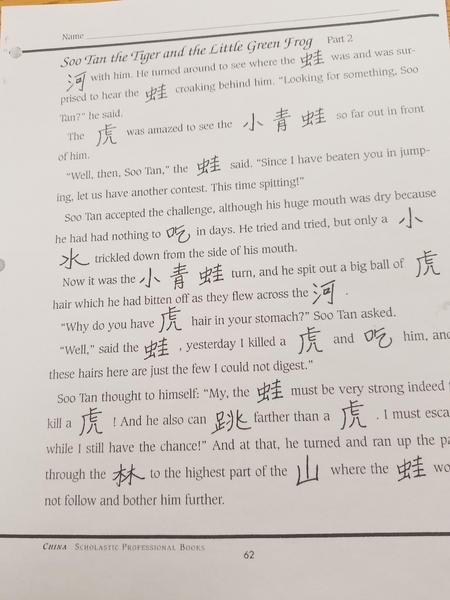 Name
Soo Tan the Tiger and the Little Green Frog Part 2
河 with him. He turned around to see where the 蛙 was and was sur-
prised to hear the 蛙 croaking behind him. "Looking for something, Soo
Tan?" he said.
The 虎 was amazed to see the 小青蛙 so far out in front
of him.
"Well, then, Soo Tan," the 蛙 said. "Since I have beaten you in jump-
ing, let us have another contest. This time spitting!"
Soo Tan accepted the challenge, although his huge mouth was dry because
he had had nothing to 吃 in days. He tried and tried, but only a 小
水 trickled down from the side of his mouth.
Now it was the 小青蛙 turn, and he spit out a big ball of 虎
hair which he had bitten off as they flew across the 河.
"Why do you have 虎 hair in your stomach?" Soo Tan asked.
"Well," said the 蛙, yesterday I killed a 虎 and 吃 him, and
these hairs here are just the few I could not digest."
Soo Tan thought to himself: "My, the 蛙 must be very strong indeed
kill a 虎! And he also can 跳 farther than a 虎. I must
while I still have the chance!" And at that, he turned and ran up the
through the 林 to the highest part of the 山 where the 蛙
not follow and bother him further.
CHINA SCHOLASTIC PROFESSIONAL BOOKS
62